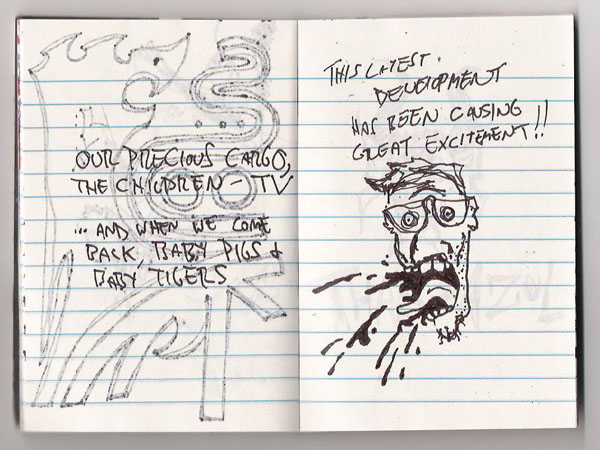 OUR PRECIOUS CARGO,
THE CHILDREN - TV
... AND WHEN WE COME
BACK, BABY PIGS &
BABY TIGERS
THIS LATEST
DEVELOPMENT
HAS BEEN CAUSING
GREAT EXCITEMENT!!